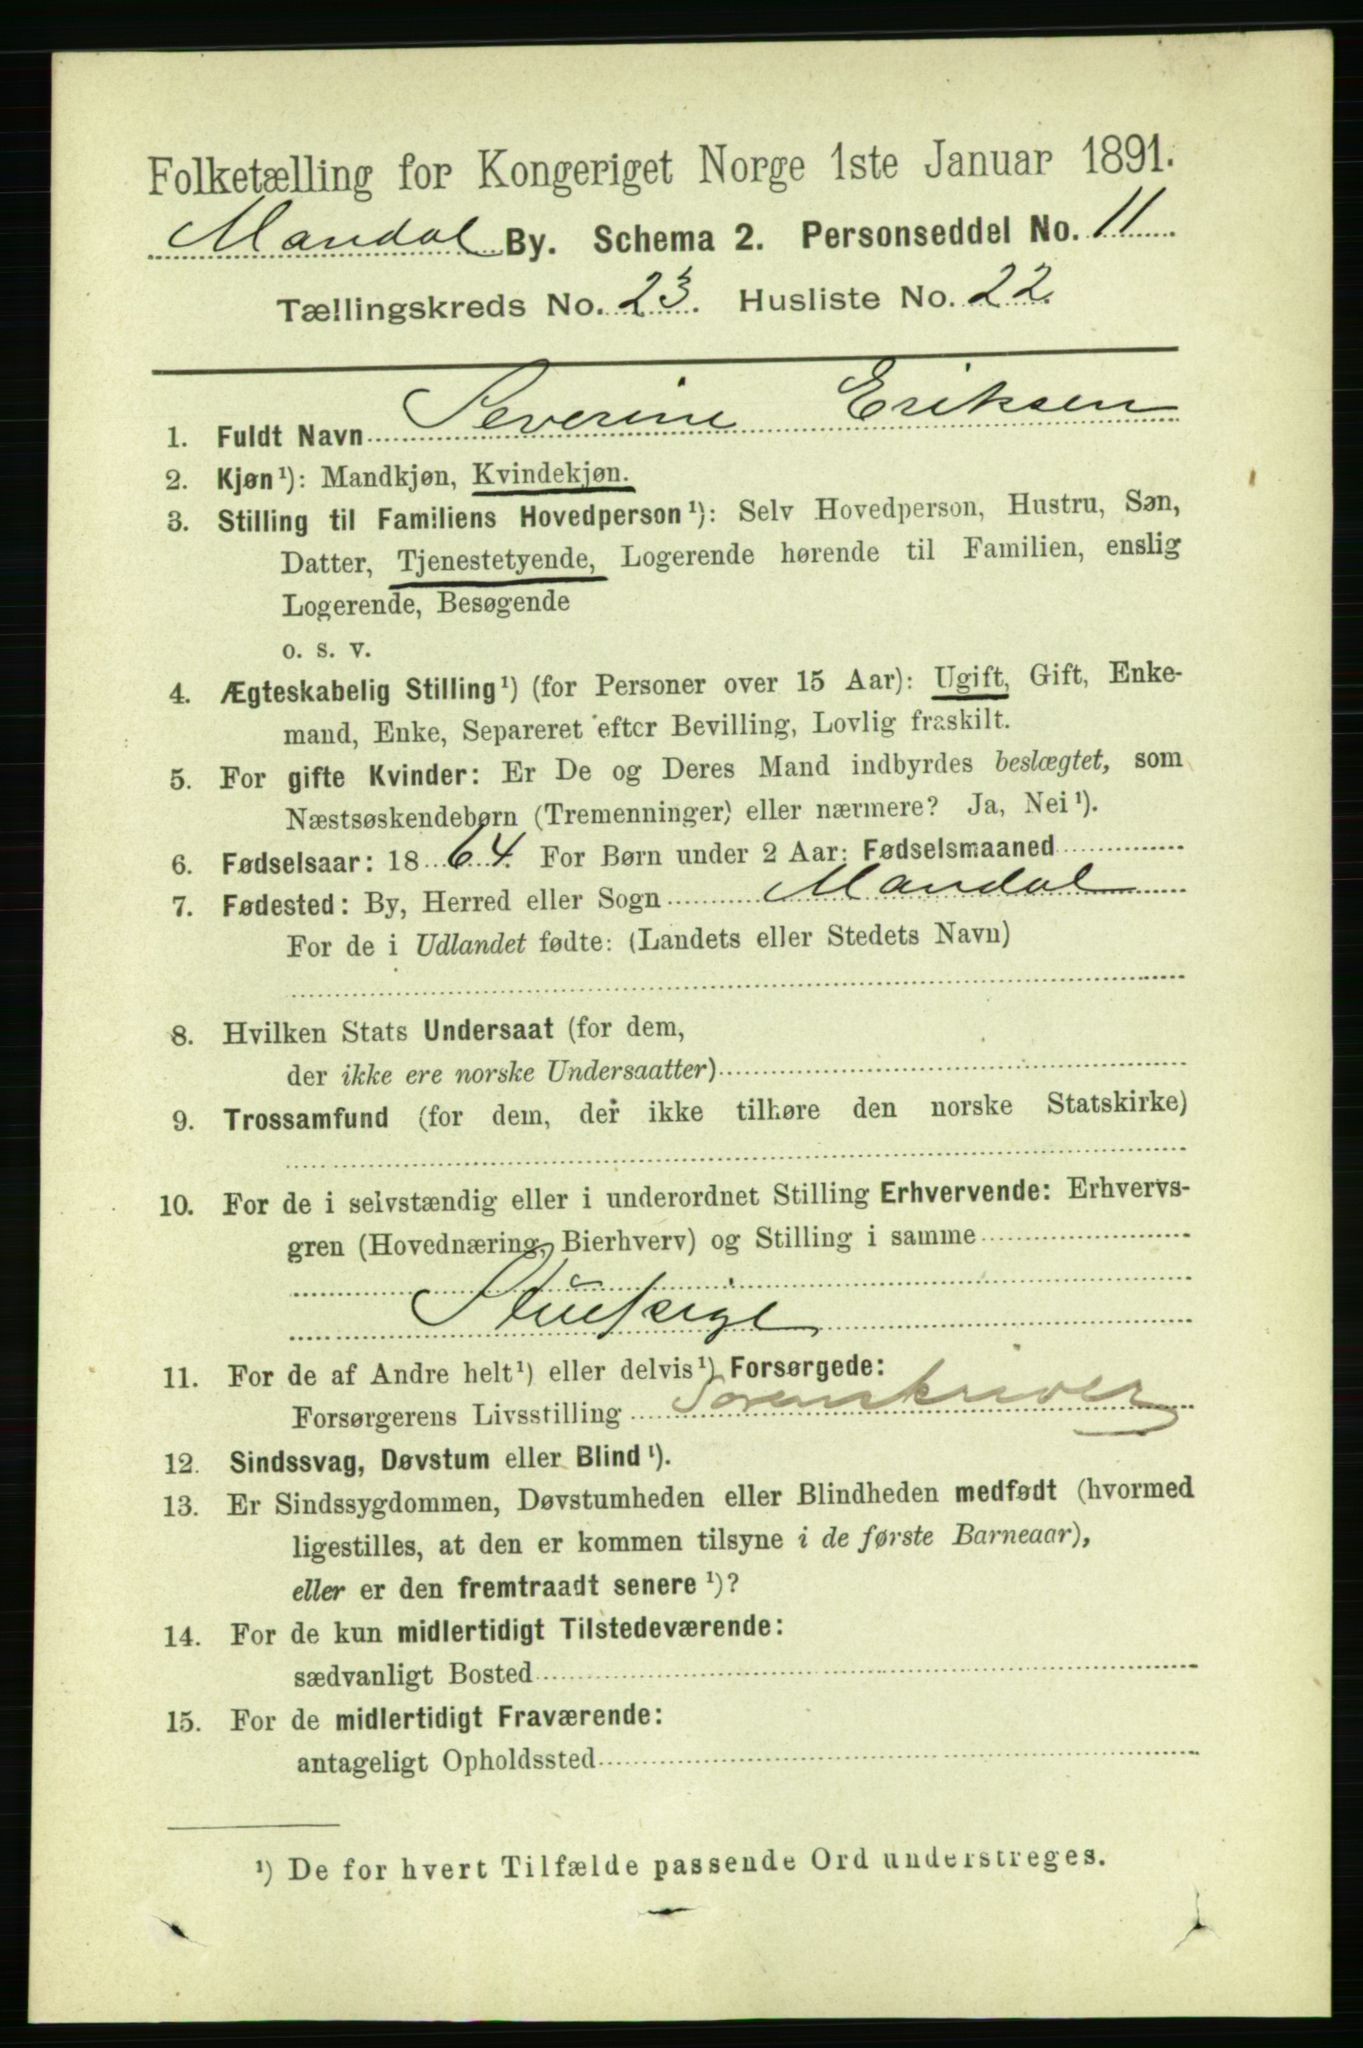 Folketælling for Kongeriget Norge 1ste Januar 1891.
Mandal By. Schema 2. Personseddel No. 11
Tællingskreds No. 23. Husliste No. 22.
1. Fuldt Navn Severine Eriksen
2. Kjøn¹): Mandkjøn, Kvindekjøn.
3. Stilling til Familiens Hovedperson¹): Selv Hovedperson, Hustru, Søn,
Datter, Tjenestetyende, Logerende hørende til Familien, enslig
Logerende, Besøgende
o. s. v.
4. Ægteskabelig Stilling¹) (for Personer over 15 Aar): Ugift, Gift, Enke-
mand, Enke, Separeret efter Bevilling, Lovlig fraskilt.
5. For gifte Kvinder: Er De og Deres Mand indbyrdes beslægtet, som
Næstsøskendebørn (Tremenninger) eller nærmere? Ja, Nei¹).
6. Fødselsaar: 1864. For Børn under 2 Aar: Fødselsmaaned
7. Fødested: By, Herred eller Sogn Mandal
For de i Udlandet fødte: (Landets eller Stedets Navn)
8. Hvilken Stats Undersaat (for dem,
der ikke ere norske Undersaatter)
9. Trossamfund (for dem, der ikke tilhøre den norske Statskirke)
10. For de i selvstændig eller i underordnet Stilling Erhvervende: Erhvervs-
gren (Hovednæring, Bierhverv) og Stilling i samme
Stuepige
11. For de af Andre helt¹) eller delvis¹) Forsørgede:
Forsørgerens Livsstilling Sorenskriver
12. Sindssvag, Døvstum eller Blind¹).
13. Er Sindssygdommen, Døvstumheden eller Blindheden medfødt (hvormed
ligestilles, at den er kommen tilsyne i de første Barneaar),
eller er den fremtraadt senere¹)?
14. For de kun midlertidigt Tilstedeværende:
sædvanligt Bosted
15. For de midlertidigt Fraværende:
antageligt Opholdssted
¹) De for hvert Tilfælde passende Ord understreges.